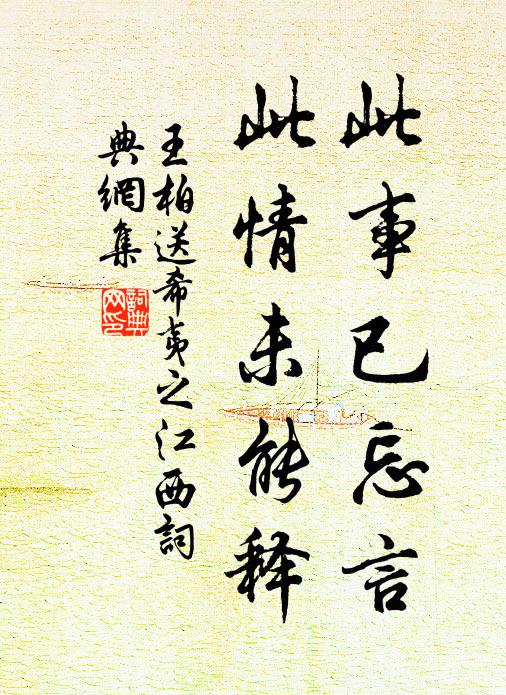 此事已忘言
此情未能释
王柏送希夷之江西詞
典網集
詞典
网印